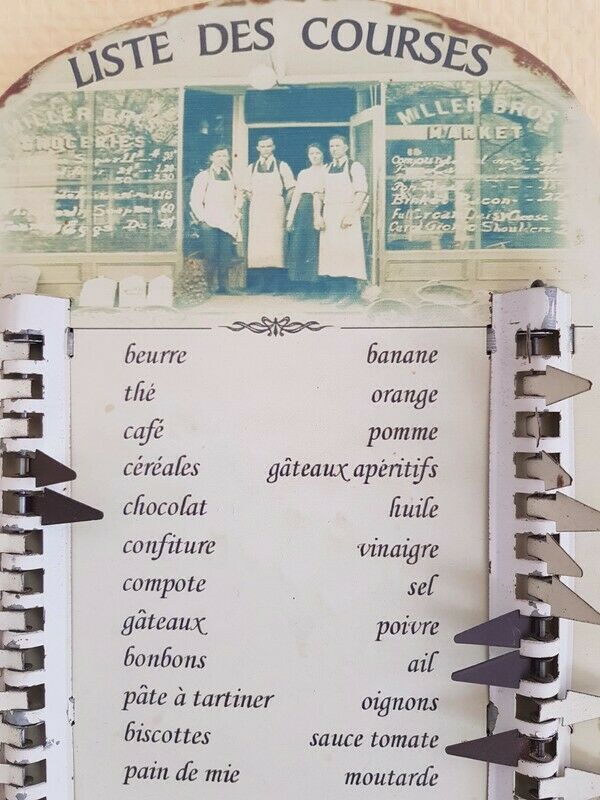 LISTE DES COURSES
MILLER BROS
GROCERIES
MILLER BROS
MARKET
beurre
thé
café
céréales
chocolat
confiture
compote
gâteaux
bonbons
pâte à tartiner
biscottes
pain de mie
banane
orange
pomme
gâteaux apéritifs
huile
vinaigre
sel
poivre
ail
oignons
sauce tomate
moutarde